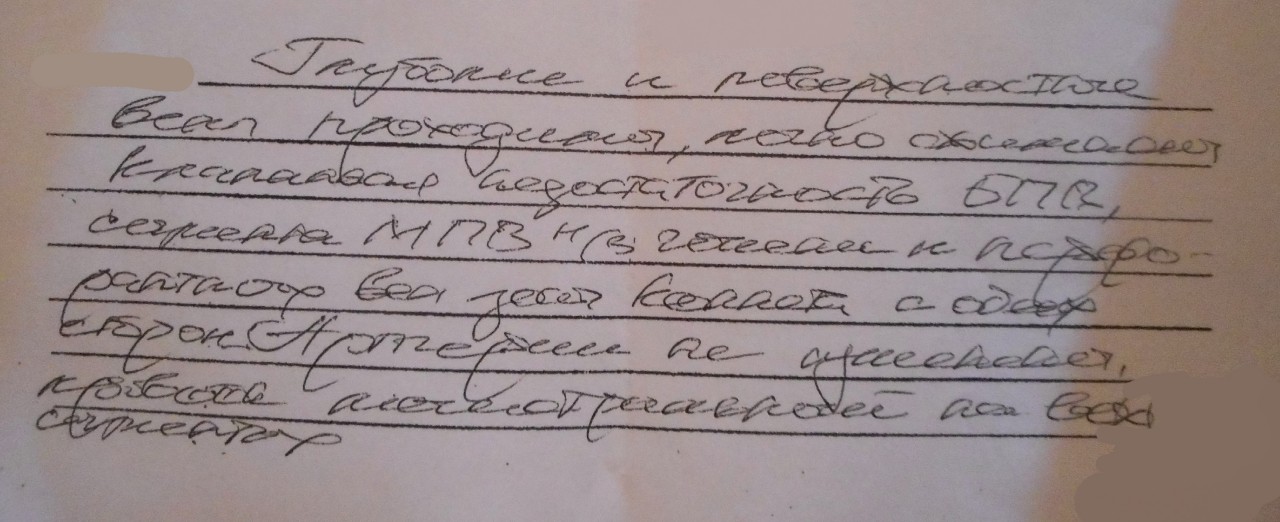 Глубокие и поверхностные
вены проходимы, сжимаемы
Клапанная недостаточность БПВ,
сегмента МПВ н/3 голени и перфо-
рантных вен голени с обеих
сторон. Артерии не изменены,
кровоток магистральный на всех
сегментах